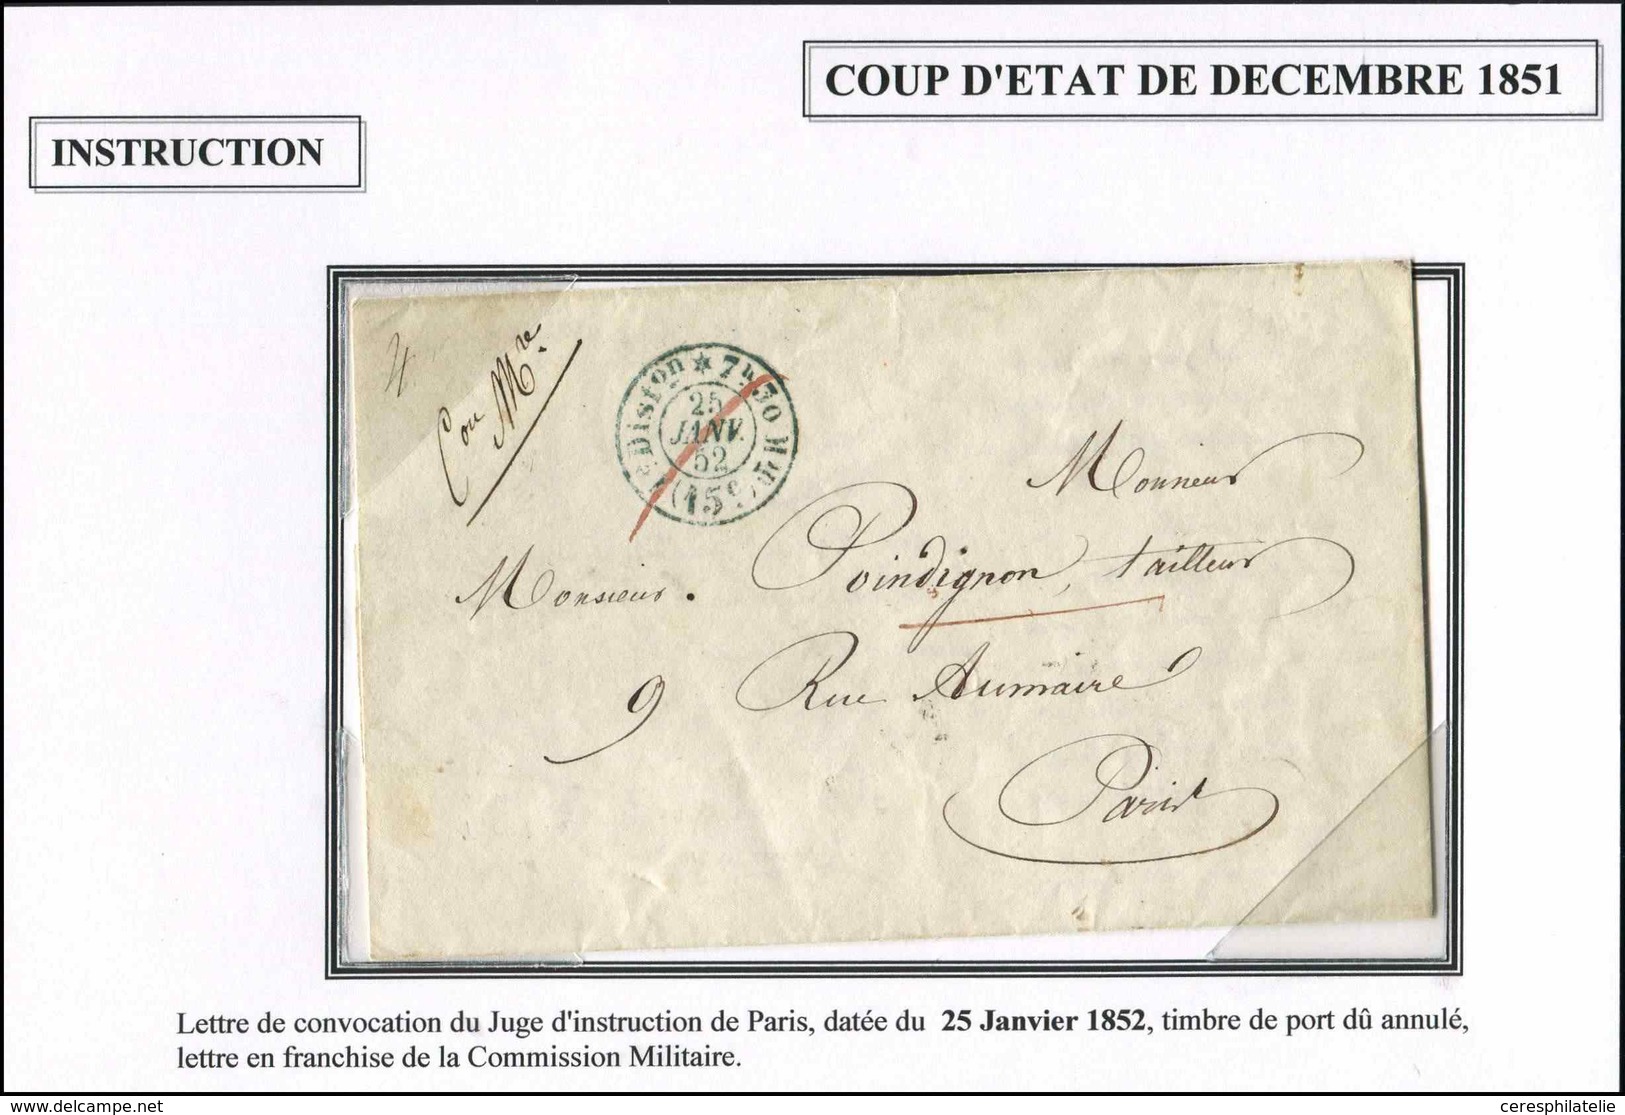 COUP D'ETAT DE DECEMBRE 1851
INSTRUCTION
Con Mre.
1e Distön ★ 7h30 M
25
JANV.
52
(15c)
Monsieur
Monsieur. Poindignon, tailleur
9 Rue Aumaire
Paris
Lettre de convocation du Juge d'instruction de Paris, datée du 25 Janvier 1852, timbre de port dû annulé,
lettre en franchise de la Commission Militaire.
delcampe.net
ceresphilatelie